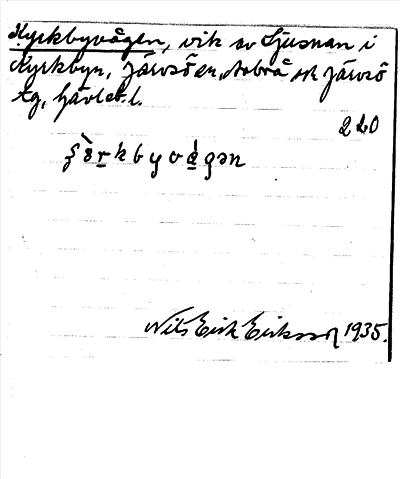 Kyrkbyvågen, vik av Ljusnan i
Kyrkbyn, Järvsö sn, Arbrå ok Järvsö
tg, Gävleb. l.
240
Nils Erik Eriksson 1935.